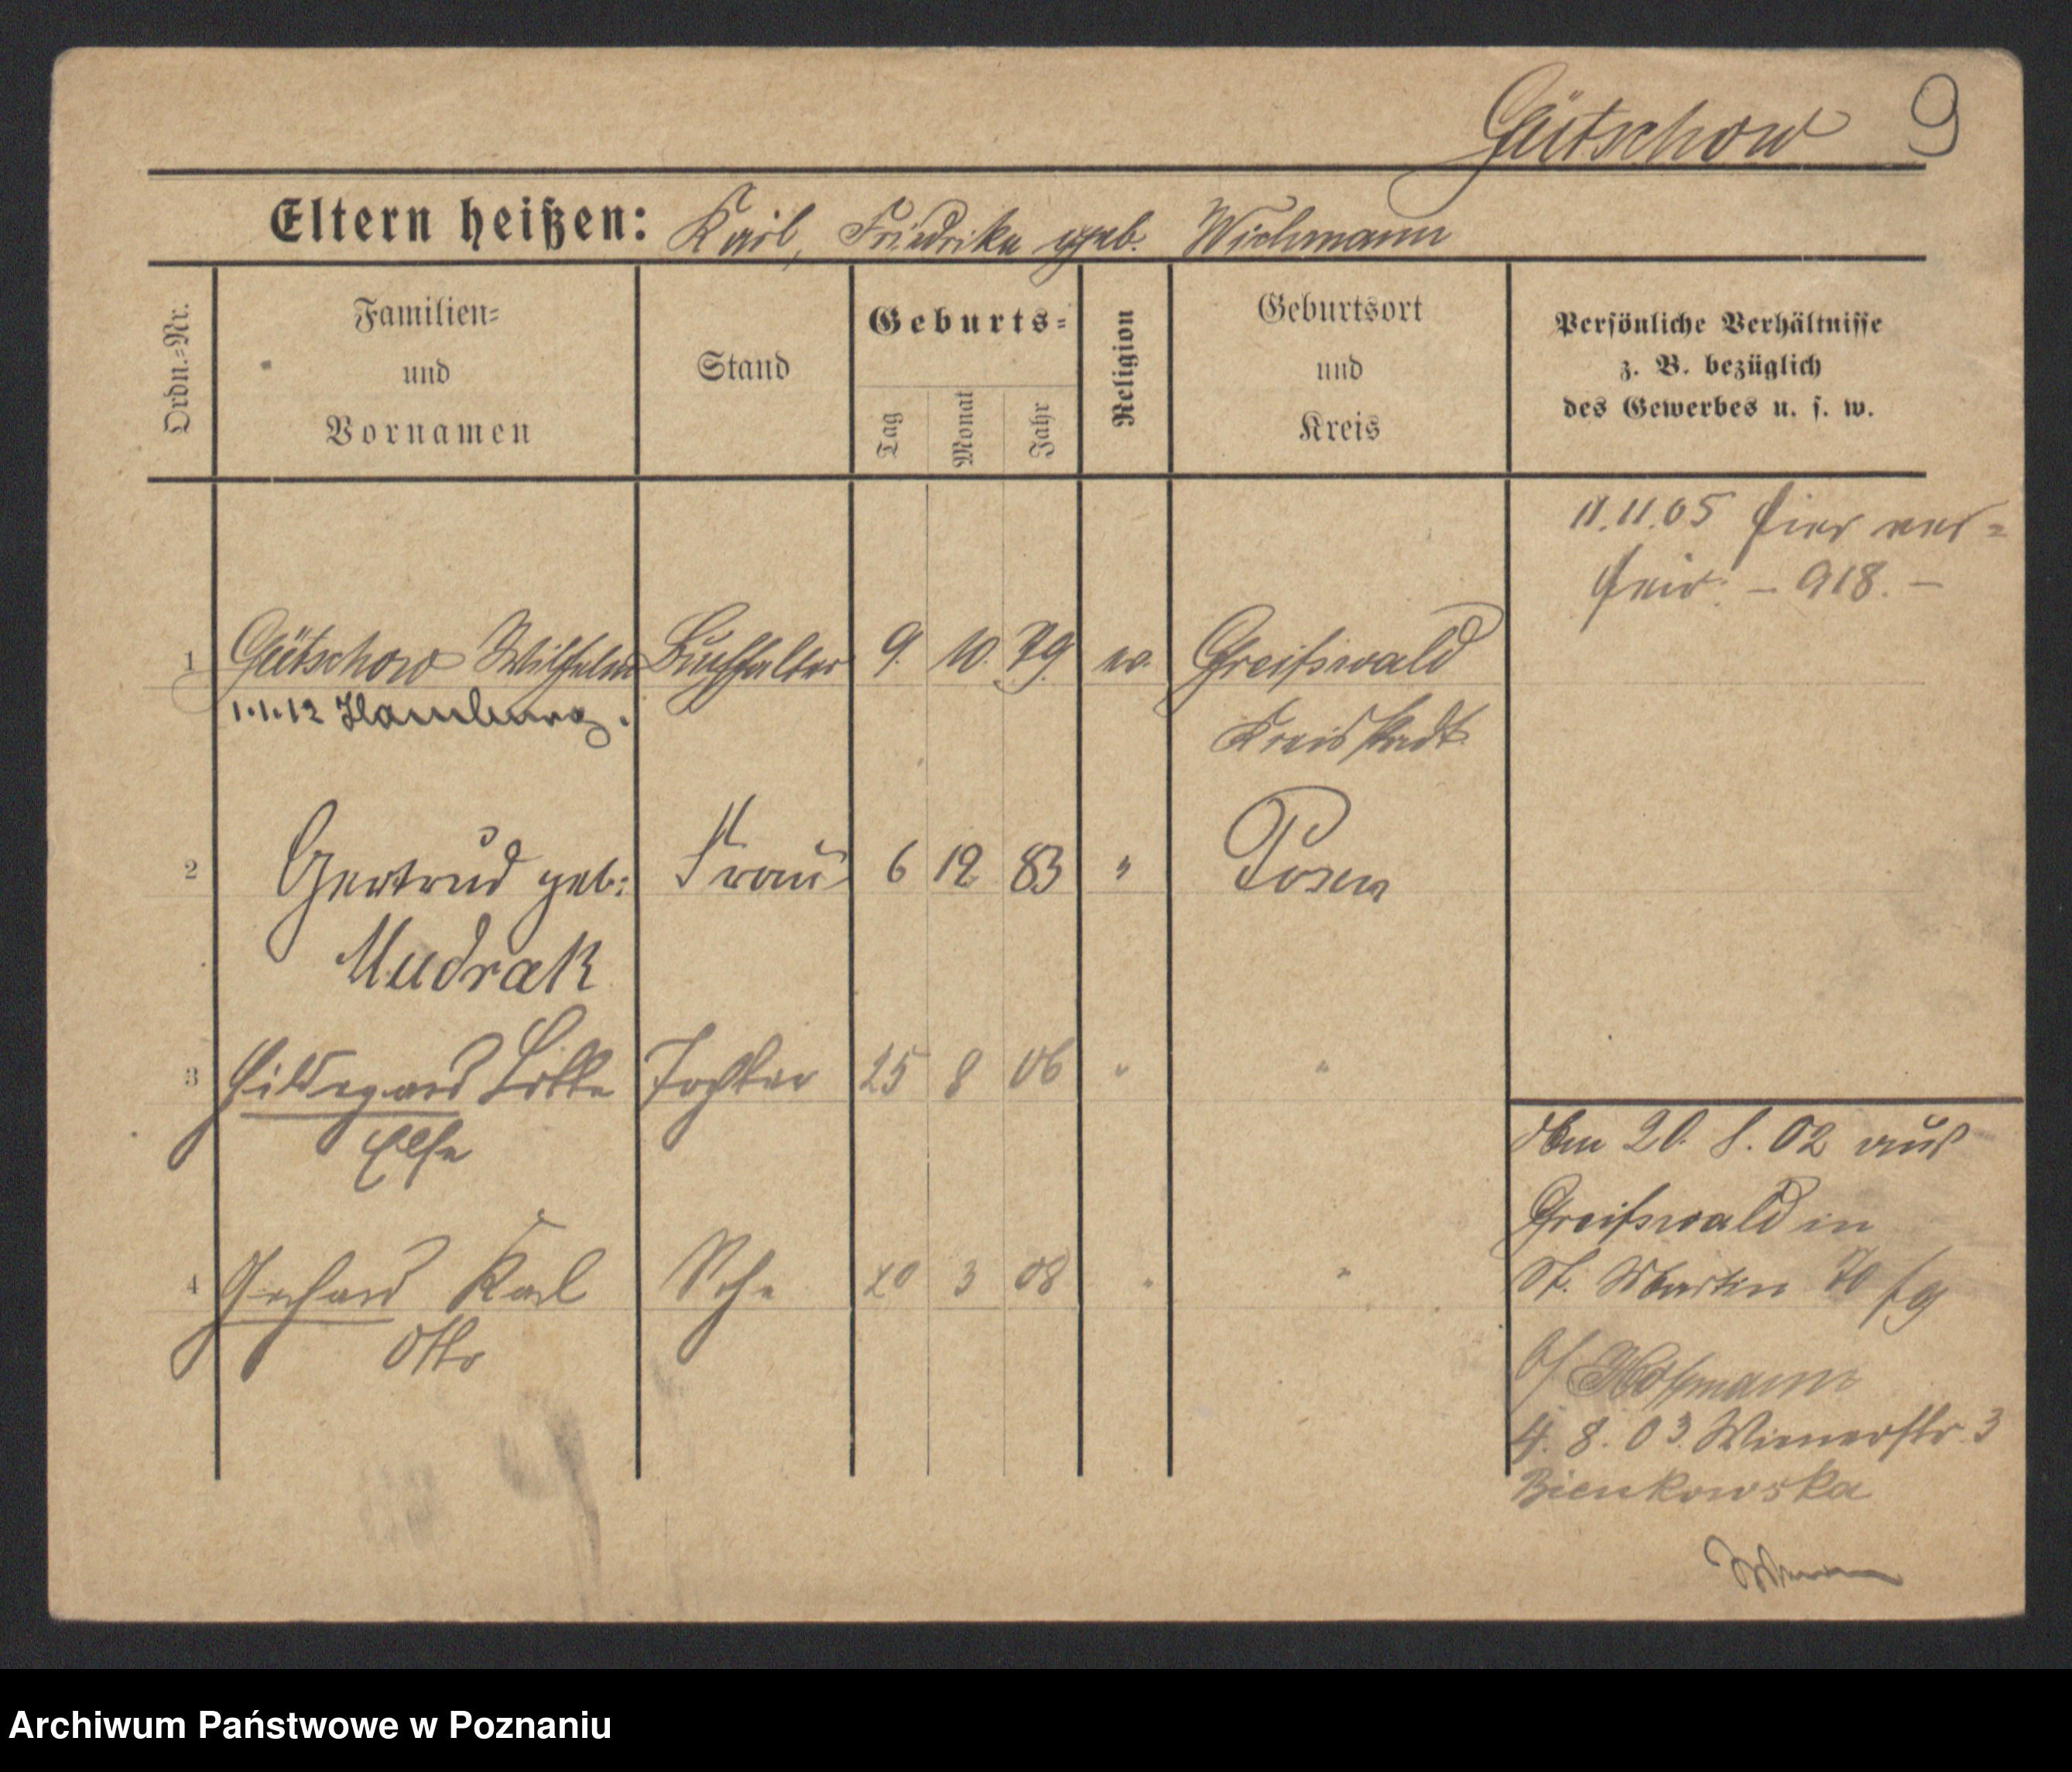 Gütschow 9
Eltern heißen: Karl, Friedrike geb. Wichmann
Ordn.=Nr.
Familien=
und
Vornamen
Stand
Geburts=
Tag
Monat
Jahr
Religion
Geburtsort
und
Kreis
Persönliche Verhältnisse
z. B. bezüglich
des Gewerbes u. s. w.
11.11.05 hier ver=
heir. – 918. –
1 Gütschow Wilhelm Buchhalter 9. 10. 79. ev. Greifswald
1.1.12 Hamburg. Kreisstadt
2 Gertrud geb: Frau 6 12 83 " Posen
Mudrak
3 Hildegard Tochter 25 8 06 " "
Else
4 Gerhard Karl Sohn 20 3 08 " "
Otto
20. 8. 02 aus
Greifswald in
St. Martin
Hoffmann
4. 8. 03. Wienerstr. 3
Bienkowska
Archiwum Państwowe w Poznaniu